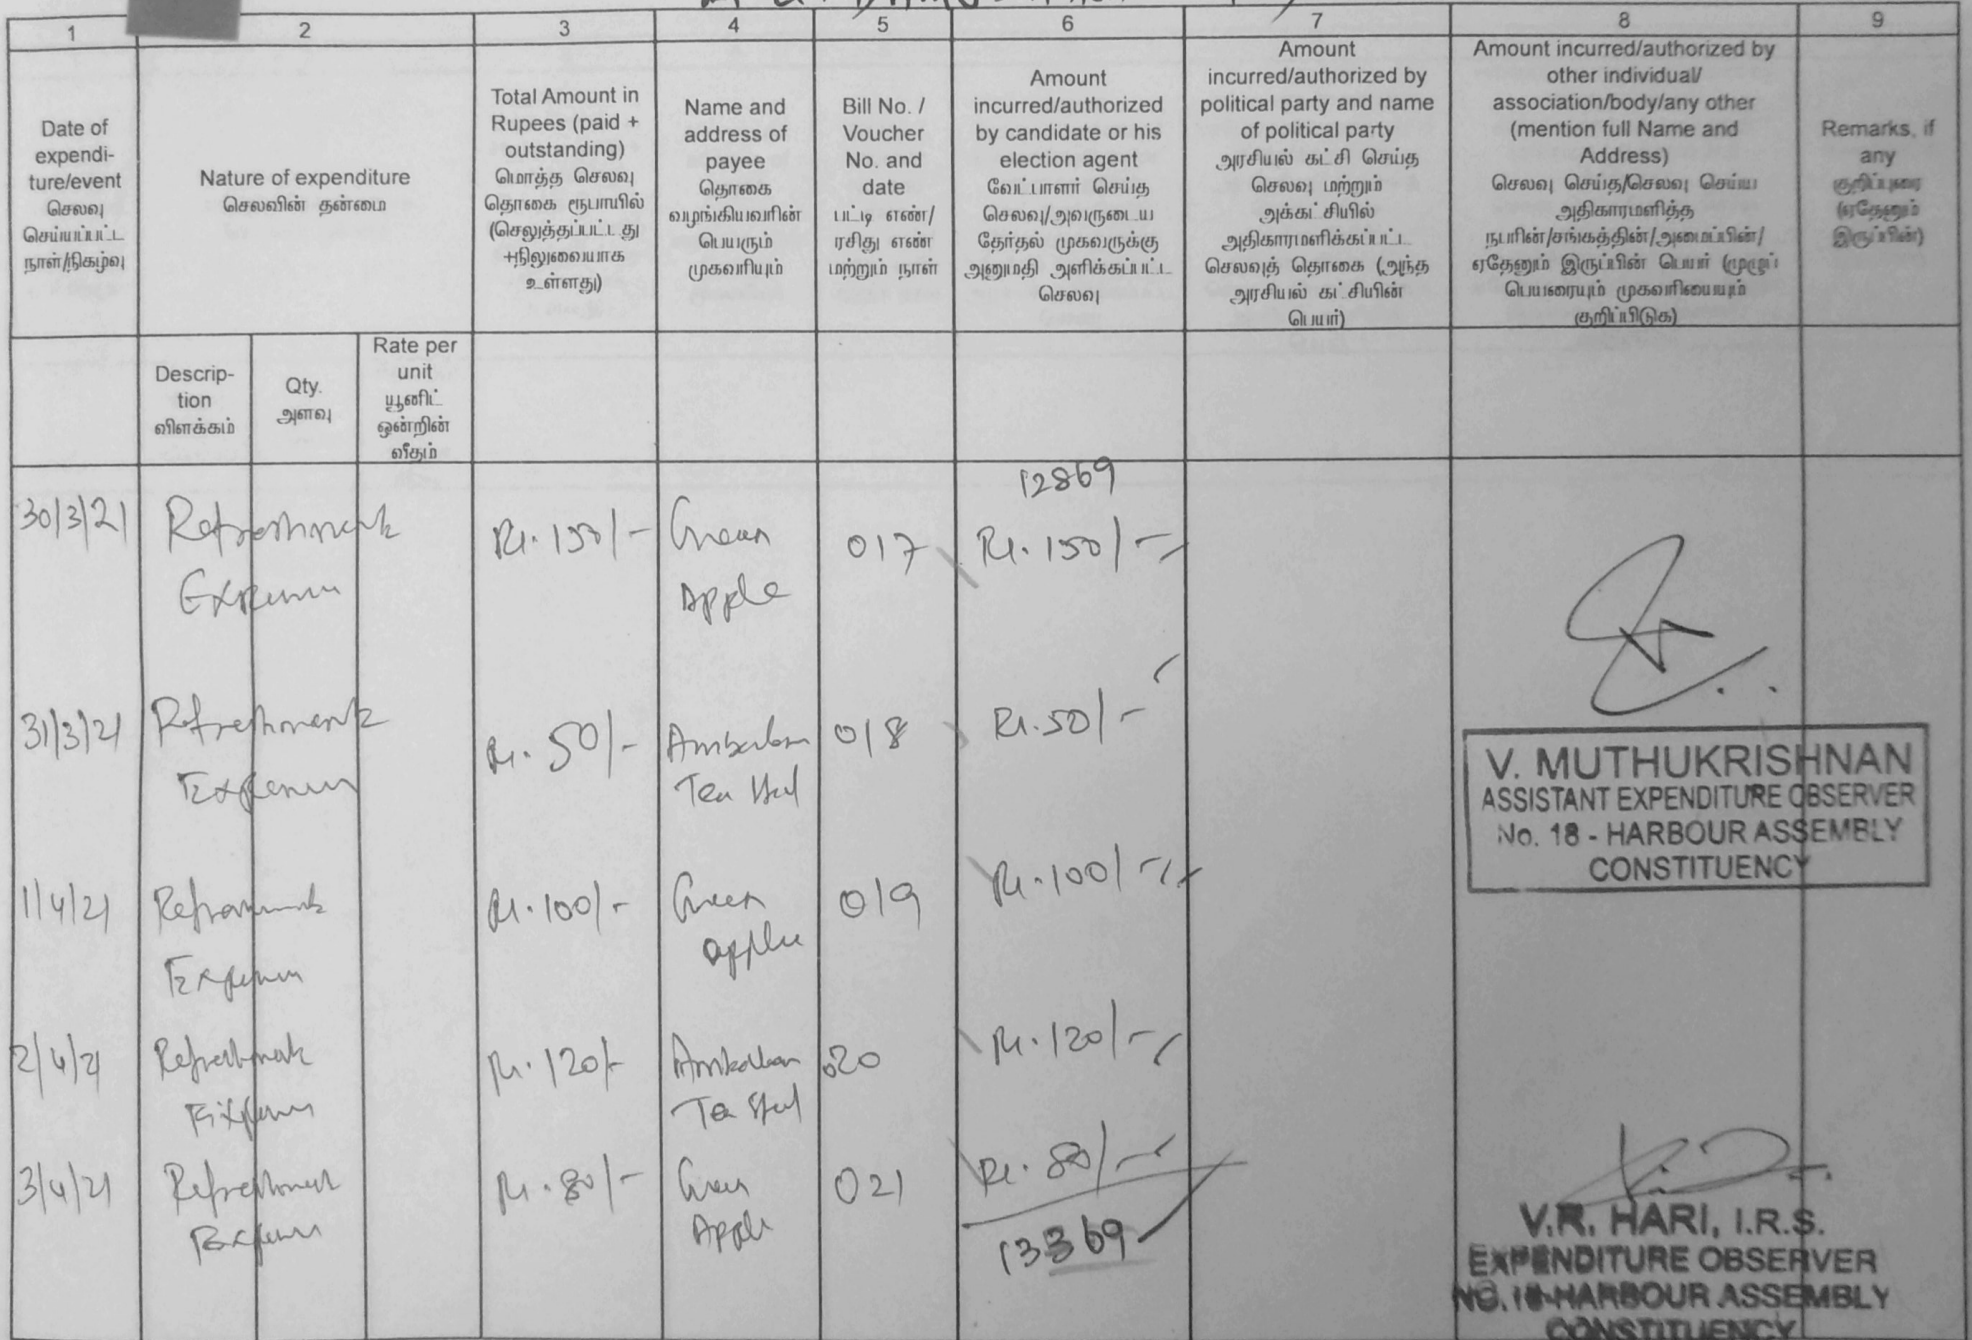 1 2 3 4 5 6 7 8 9
Date of
expendi-
ture/event
செலவு
செய்யப்பட்ட
நாள்/நிகழ்வு
Nature of expenditure
செலவின் தன்மை
Total Amount in
Rupees (paid +
outstanding)
மொத்த செலவு
தொகை ரூபாயில்
(செலுத்தப்பட்டது
+நிலுவையாக
உள்ளது)
Name and
address of
payee
தொகை
வழங்கியவரின்
பெயரும்
முகவரியும்
Bill No. /
Voucher
No. and
date
பட்டி எண்/
ரசிது எண்
மற்றும் நாள்
Amount
incurred/authorized
by candidate or his
election agent
வேட்பாளர் செய்த
செலவு/அவருடைய
தேர்தல் முகவருக்கு
அனுமதி அளிக்கப்பட்ட
செலவு
Amount
incurred/authorized by
political party and name
of political party
அரசியல் கட்சி செய்த
செலவு மற்றும்
அக்கட்சியில்
அதிகாரமளிக்கப்பட்ட
செலவுத் தொகை (அந்த
அரசியல் கட்சியின்
பெயர்)
Amount incurred/authorized by
other individual/
association/body/any other
(mention full Name and
Address)
செலவு செய்த/செலவு செய்ய
அதிகாரமளித்த
நபரின்/சங்கத்தின்/அமைப்பின்/
ஏதேனும் இருப்பின் பெயர் (முழுப்
பெயரையும் முகவரியையும்
குறிப்பிடுக)
Remarks, if
any
குறிப்புரை
(ஏதேனும்
இருப்பின்)
Descrip-
tion
விளக்கம்
Qty.
அளவு
Rate per
unit
யூனிட்
ஒன்றின்
வீதம்
12869
30/3/21 Refreshment Rs.150/- Green 017 Rs.150/-
Expenses Apple
31/3/21 Refreshment Rs.50/- 018 Rs.50/-
Expenses Tea Stall
1/4/21 Refreshment Rs.100/- Green 019 Rs.100/-
Expenses apple
2/4/21 Refreshment Rs.120/- 020 Rs.120/-
Expenses Tea Stall
3/4/21 Refreshment Rs.80/- Green 021 Rs.80/-
Expenses Apple
13369
V. MUTHUKRISHNAN
ASSISTANT EXPENDITURE OBSERVER
No. 18 - HARBOUR ASSEMBLY
CONSTITUENCY
V.R. HARI, I.R.S.
EXPENDITURE OBSERVER
NO.18-HARBOUR ASSEMBLY
CONSTITUENCY